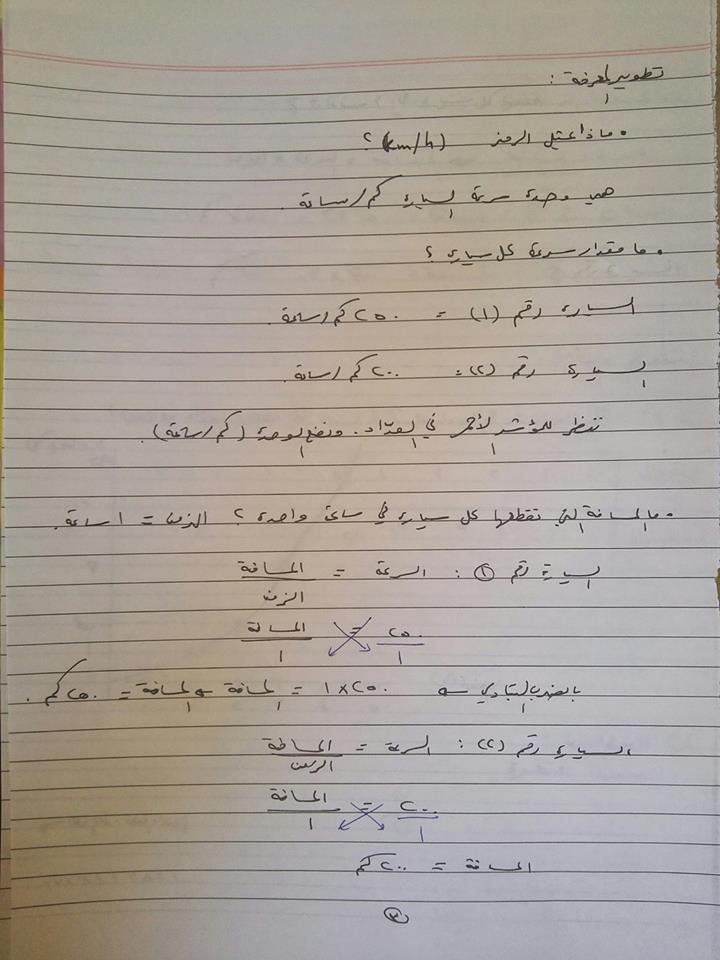 تطوير المعرفة :
• ماذا تمثل الرمز (km/h) ؟
هي وحدة سرعة السيارة كم/ساعة .
• ما مقدار سرعة كل سيارة ؟
السيارة رقم (١) = ٢٥٠ كم/ساعة .
السيارة رقم (٢) = ٢٠٠ كم/ساعة .
ننظر للمؤشر الأحمر في العدّاد . ونضع الوحدة (كم/ساعة) .
• ما المسافة التي تقطعها كل سيارة في ساعة واحدة ؟ الزمن = ١ ساعة .
السيارة رقم ① : السرعة = المسافة
الزمن
٢٥٠ = المسافة
١ ١
بالضرب التبادلي ← ٢٥٠ × ١ = المسافة ← المسافة = ٢٥٠ كم .
السيارة رقم (٢) : السرعة = المسافة
الزمن
٢٠٠ = المسافة
١ ١
المسافة = ٢٠٠ كم